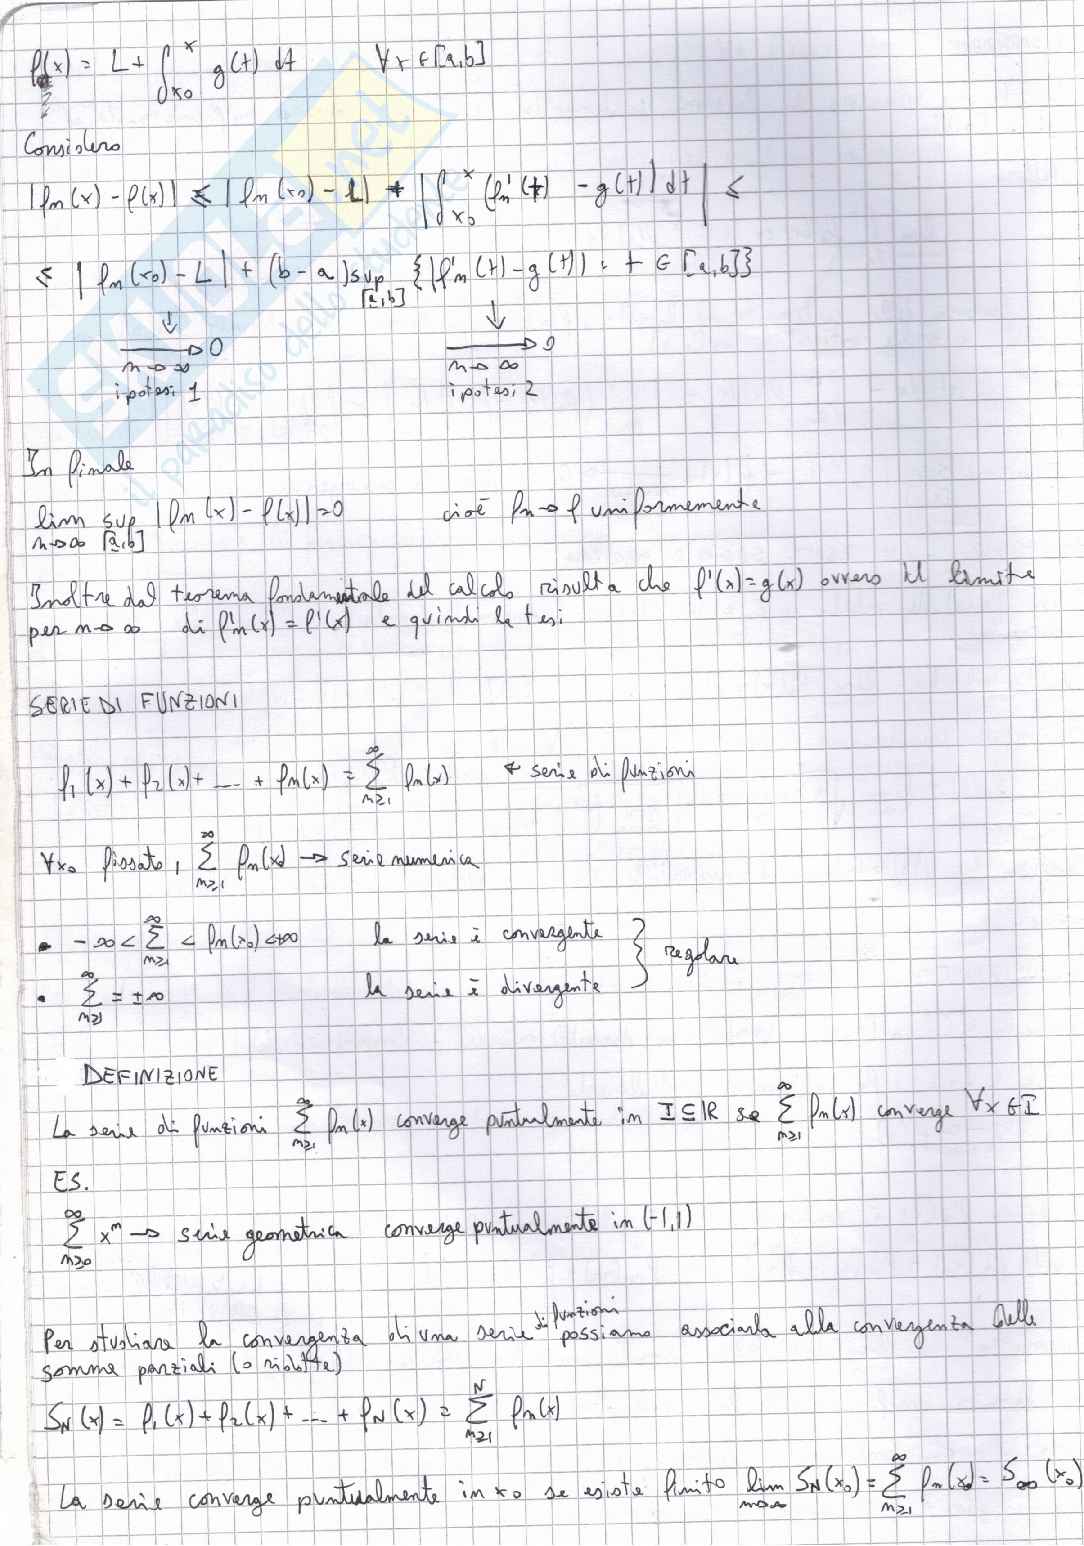 f(x) = L + ∫_{x0}^{x} g(t) dt ∀x ∈ [a,b]
Considero
|fn(x) - f(x)| ≤ |fn(x0) - L| + |∫_{x0}^{x} (fn'(t) - g(t)) dt| ≤
≤ |fn(x0) - L| + (b-a) sup_{[a,b]} {|f'n(t) - g(t)| : t ∈ [a,b]}
↓ ↓
→ 0 → 0
n→∞ n→∞
ipotesi 1 ipotesi 2
In finale
lim_{n→∞} sup_{[a,b]} |fn(x) - f(x)| = 0 cioè fn → f uniformemente
Inoltre dal teorema fondamentale del calcolo risulta che f'(x) = g(x) ovvero il limite
per n→∞ di f'n(x) = f'(x) e quindi la tesi
SERIE DI FUNZIONI
f1(x) + f2(x) + .... + fn(x) = ∑_{n≥1}^{∞} fn(x) ← serie di funzioni
∀x0 fissato, ∑_{n≥1}^{∞} fn(x0) → serie numerica
• -∞ < ∑_{n≥1}^{∞} < fn(x0) < +∞ la serie è convergente
} regolare
• ∑_{n≥1}^{∞} = ±∞ la serie è divergente
DEFINIZIONE
La serie di funzioni ∑_{n≥1}^{∞} fn(x) converge puntualmente in I ⊆ ℝ se ∑_{n≥1}^{∞} fn(x) converge ∀x ∈ I
ES.
∑_{n≥0}^{∞} x^n → serie geometrica converge puntualmente in (-1,1)
Per studiare la convergenza di una serie di funzioni possiamo associarla alla convergenza delle
somme parziali (o ridotte)
SN(x) = f1(x) + f2(x) + .... + fN(x) = ∑_{n≥1}^{N} fn(x)
La serie converge puntualmente in x0 se esiste finito lim_{n→∞} SN(x0) = ∑_{n≥1}^{∞} fn(x0) = S∞(x0)
il paradiso dello studente